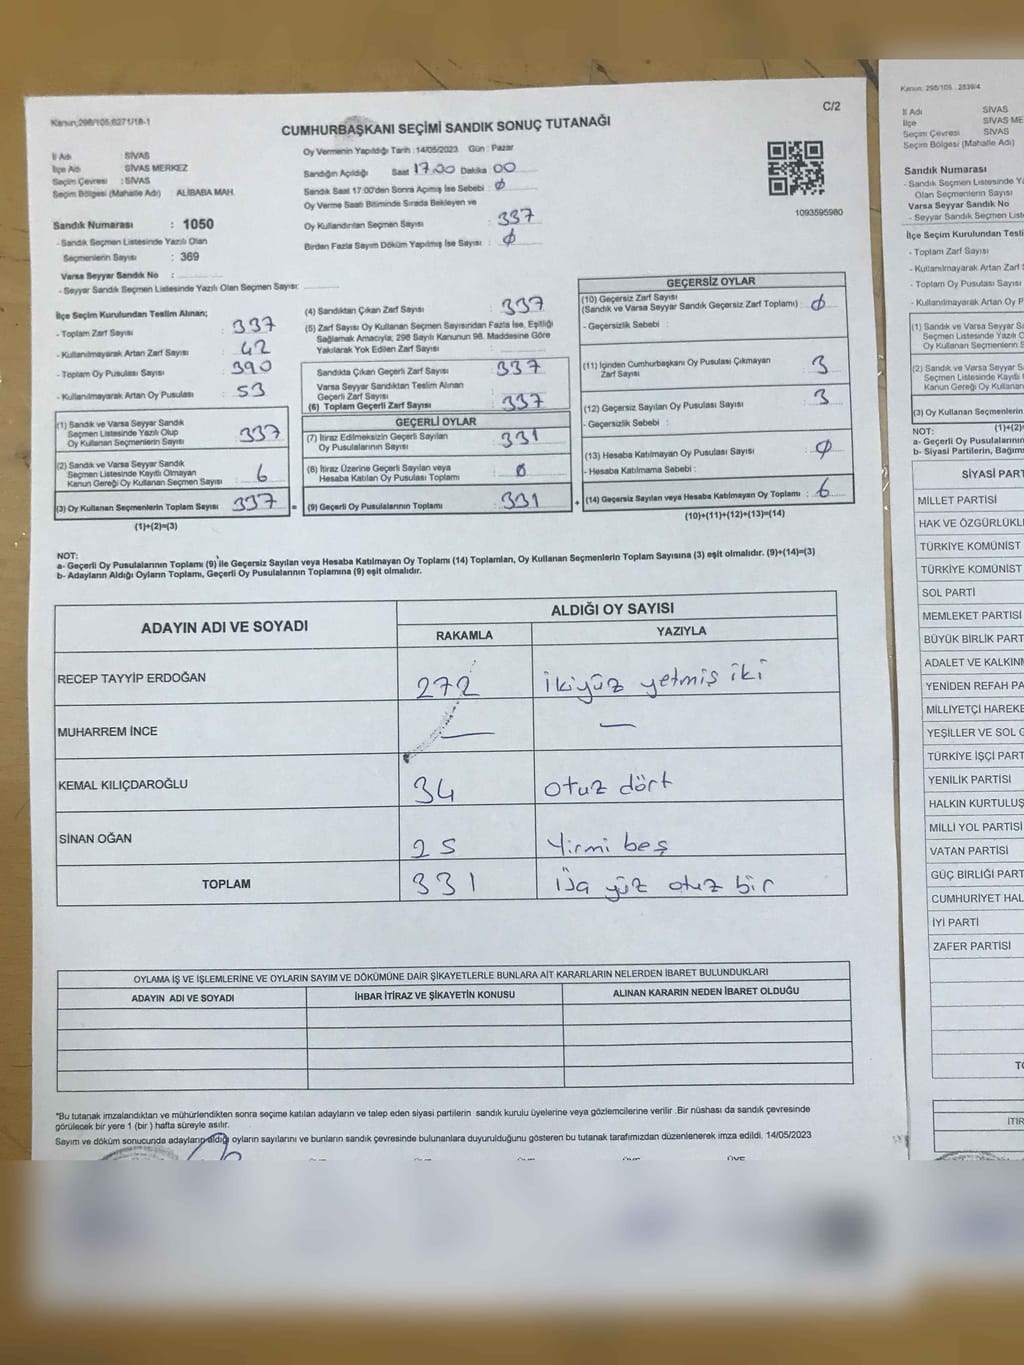 Kanun;298/105;6271/18-1
C/2
CUMHURBAŞKANI SEÇİMİ SANDIK SONUÇ TUTANAĞI
İl Adı : SİVAS
İlçe Adı : SİVAS MERKEZ
Seçim Çevresi : SİVAS
Seçim Bölgesi (Mahalle Adı) ALİBABA MAH.
Sandık Numarası : 1050
- Sandık Seçmen Listesinde Yazılı Olan
Seçmenlerin Sayısı : 369
Varsa Seyyar Sandık No :
- Seyyar Sandık Seçmen Listesinde Yazılı Olan Seçmen Sayısı:
Oy Vermenin Yapıldığı Tarih : 14/05/2023 Gün : Pazar
Sandığın Açıldığı Saat 17.00 Dakika 00
Sandık Saat 17:00'den Sonra Açımış İse Sebebi : 0
Oy Verme Saati Bitiminde Sırada Bekleyen ve
Oy Kullandırılan Seçmen Sayısı : 337
Birden Fazla Sayım Döküm Yapılmış İse Sayısı : 0
1093595980
İlçe Seçim Kurulundan Teslim Alınan;
- Toplam Zarf Sayısı : 337
- Kullanılmayarak Artan Zarf Sayısı : 42
- Toplam Oy Pusulası Sayısı : 390
- Kullanılmayarak Artan Oy Pusulası : 53
(1) Sandık ve Varsa Seyyar Sandık
Seçmen Listesinde Yazılı Olup
Oy Kullanan Seçmenlerin Sayısı : 337
(2) Sandık ve Varsa Seyyar Sandık
Seçmen Listesinde Kayıtlı Olmayan
Kanun Gereği Oy Kullanan Seçmen Sayısı : 6
(3) Oy Kullanan Seçmenlerin Toplam Sayısı : 337 =
(1)+(2)=(3)
(4) Sandıktan Çıkan Zarf Sayısı : 337
(5) Zarf Sayısı Oy Kullanan Seçmen Sayısından Fazla İse, Eşitliği
Sağlamak Amacıyla; 298 Sayılı Kanunun 98. Maddesine Göre
Yakılarak Yok Edilen Zarf Sayısı :
Sandıkta Çıkan Geçerli Zarf Sayısı : 337
Varsa Seyyar Sandıktan Teslim Alınan
Geçerli Zarf Sayısı :
(6) Toplam Geçerli Zarf Sayısı : 337
GEÇERLİ OYLAR
(7) İtiraz Edilmeksizin Geçerli Sayılan
Oy Pusulalarının Sayısı : 331
(8) İtiraz Üzerine Geçerli Sayılan veya
Hesaba Katılan Oy Pusulası Toplamı : 0
(9) Geçerli Oy Pusulalarının Toplamı : 331 +
GEÇERSİZ OYLAR
(10) Geçersiz Zarf Sayısı
(Sandık ve Varsa Seyyar Sandık Geçersiz Zarf Toplamı) : 0
- Geçersizlik Sebebi :
(11) İçinden Cumhurbaşkanı Oy Pusulası Çıkmayan
Zarf Sayısı : 3
(12) Geçersiz Sayılan Oy Pusulası Sayısı : 3
- Geçersizlik Sebebi :
(13) Hesaba Katılmayan Oy Pusulası Sayısı : 0
- Hesaba Katılmama Sebebi :
(14) Geçersiz Sayılan veya Hesaba Katılmayan Oy Toplamı : 6
(10)+(11)+(12)+(13)=(14)
NOT:
a- Geçerli Oy Pusulalarının Toplamı (9) ile Geçersiz Sayılan veya Hesaba Katılmayan Oy Toplamı (14) Toplamları, Oy Kullanan Seçmenlerin Toplam Sayısına (3) eşit olmalıdır. (9)+(14)=(3)
b- Adayların Aldığı Oyların Toplamı, Geçerli Oy Pusulalarının Toplamına (9) eşit olmalıdır.
ADAYIN ADI VE SOYADI
ALDIĞI OY SAYISI
RAKAMLA YAZIYLA
RECEP TAYYİP ERDOĞAN 272 ikiyüz yetmiş iki
MUHARREM İNCE — —
KEMAL KILIÇDAROĞLU 34 otuz dört
SİNAN OĞAN 25 Yirmi beş
TOPLAM 331 yüz otuz bir
OYLAMA İŞ VE İŞLEMLERİNE VE OYLARIN SAYIM VE DÖKÜMÜNE DAİR ŞİKAYETLERLE BUNLARA AİT KARARLARIN NELERDEN İBARET BULUNDUKLARI
ADAYIN ADI VE SOYADI İHBAR İTİRAZ VE ŞİKAYETİN KONUSU ALINAN KARARIN NEDEN İBARET OLDUĞU
*Bu tutanak imzalandıktan ve mühürlendikten sonra seçime katılan adayların ve talep eden siyasi partilerin sandık kurulu üyelerine veya gözlemcilerine verilir .Bir nüshası da sandık çevresinde
görülecek bir yere 1 (bir ) hafta süreyle asılır.
Sayım ve döküm sonucunda adayların aldığı oyların sayılarını ve bunların sandık çevresinde bulunanlara duyurulduğunu gösteren bu tutanak tarafımızdan düzenlenerek imza edildi. 14/05/2023
Kanun; 298/105 : 2839/4
İl Adı SİVAS
İlçe SİVAS ME
Seçim Çevresi SİVAS
Seçim Bölgesi (Mahalle Adı)
Sandık Numarası
- Sandık Seçmen Listesinde Ya
Olan Seçmenlerin Sayısı
Varsa Seyyar Sandık No
- Seyyar Sandık Seçmen List
İlçe Seçim Kurulundan Tesli
- Toplam Zarf Sayısı
- Kullanılmayarak Artan Zarf
- Toplam Oy Pusulası Sayısı
- Kullanılmayarak Artan Oy P
(1) Sandık ve Varsa Seyyar Sa
Seçmen Listesinde Yazılı O
Oy Kullanan Seçmenlerin S
(2) Sandık ve Varsa Seyyar Sa
Seçmen Listesinde Kayıtlı
Kanun Gereği Oy Kullanan
(3) Oy Kullanan Seçmenlerin
NOT: (1)+(2)=
a- Geçerli Oy Pusulalarının
b- Siyasi Partilerin, Bağıms
SİYASİ PART
MİLLET PARTİSİ
HAK VE ÖZGÜRLÜKL
TÜRKİYE KOMÜNİST
TÜRKİYE KOMÜNİST
SOL PARTİ
MEMLEKET PARTİSİ
BÜYÜK BİRLİK PART
ADALET VE KALKIN
YENİDEN REFAH PA
MİLLİYETÇİ HAREKE
YEŞİLLER VE SOL G
TÜRKİYE İŞÇİ PART
YENİLİK PARTİSİ
HALKIN KURTULUŞ
MİLLİ YOL PARTİSİ
VATAN PARTİSİ
GÜÇ BİRLİĞİ PART
CUMHURİYET HAL
İYİ PARTİ
ZAFER PARTİSİ
TO
İTİR